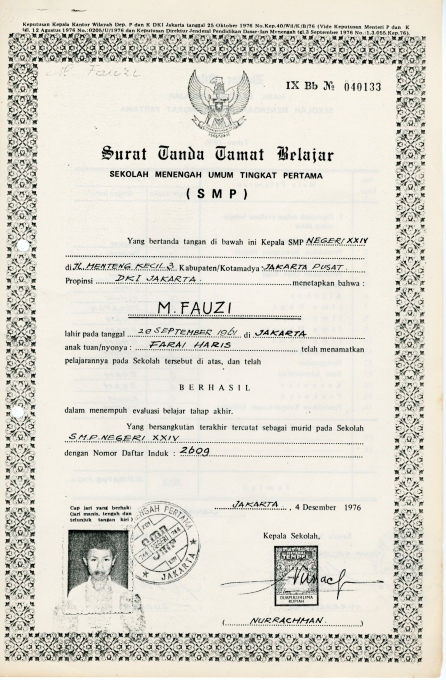 Keputusan Kepala Kantor Wilayah Dep. P dan K DKI Jakarta tanggal 25 Oktober 1976 No.Kep.40/Wil/K/B/76 (Vide Keputusan Menteri P dan K
tgl. 12 Agustus 1976 No.:0205/U/1976 dan Keputusan Direktur Jenderal Pendidikan Dasar dan Menengah tgl.3 September 1976 No.:1.3.055.Kep.76).
M. Fauzi
IX Bb № 040133
Surat Tanda Tamat Belajar
SEKOLAH MENENGAH UMUM TINGKAT PERTAMA
(SMP)
Yang bertanda tangan di bawah ini Kepala SMP NEGERI XXIV
di JL. MENTENG KECIL 3 Kabupaten/Kotamadya : JAKARTA PUSAT
Propinsi DKI JAKARTA menetapkan bahwa :
M. FAUZI
lahir pada tanggal 20 SEPTEMBER 1961 di JAKARTA
anak tuan/nyonya : FARAI HARIS telah menamatkan
pelajarannya pada Sekolah tersebut di atas, dan telah
BERHASIL
dalam menempuh evaluasi belajar tahap akhir.
Yang bersangkutan terakhir tercatat sebagai murid pada Sekolah
S.M.P. NEGERI XXIV
dengan Nomor Daftar Induk : 2609
JAKARTA, 4 Desember 1976
Cap jari yang berhak:
(Jari manis, tengah dan
telunjuk tangan kiri)
Kepala Sekolah,
JAKARTA
(NURRACHMAN)